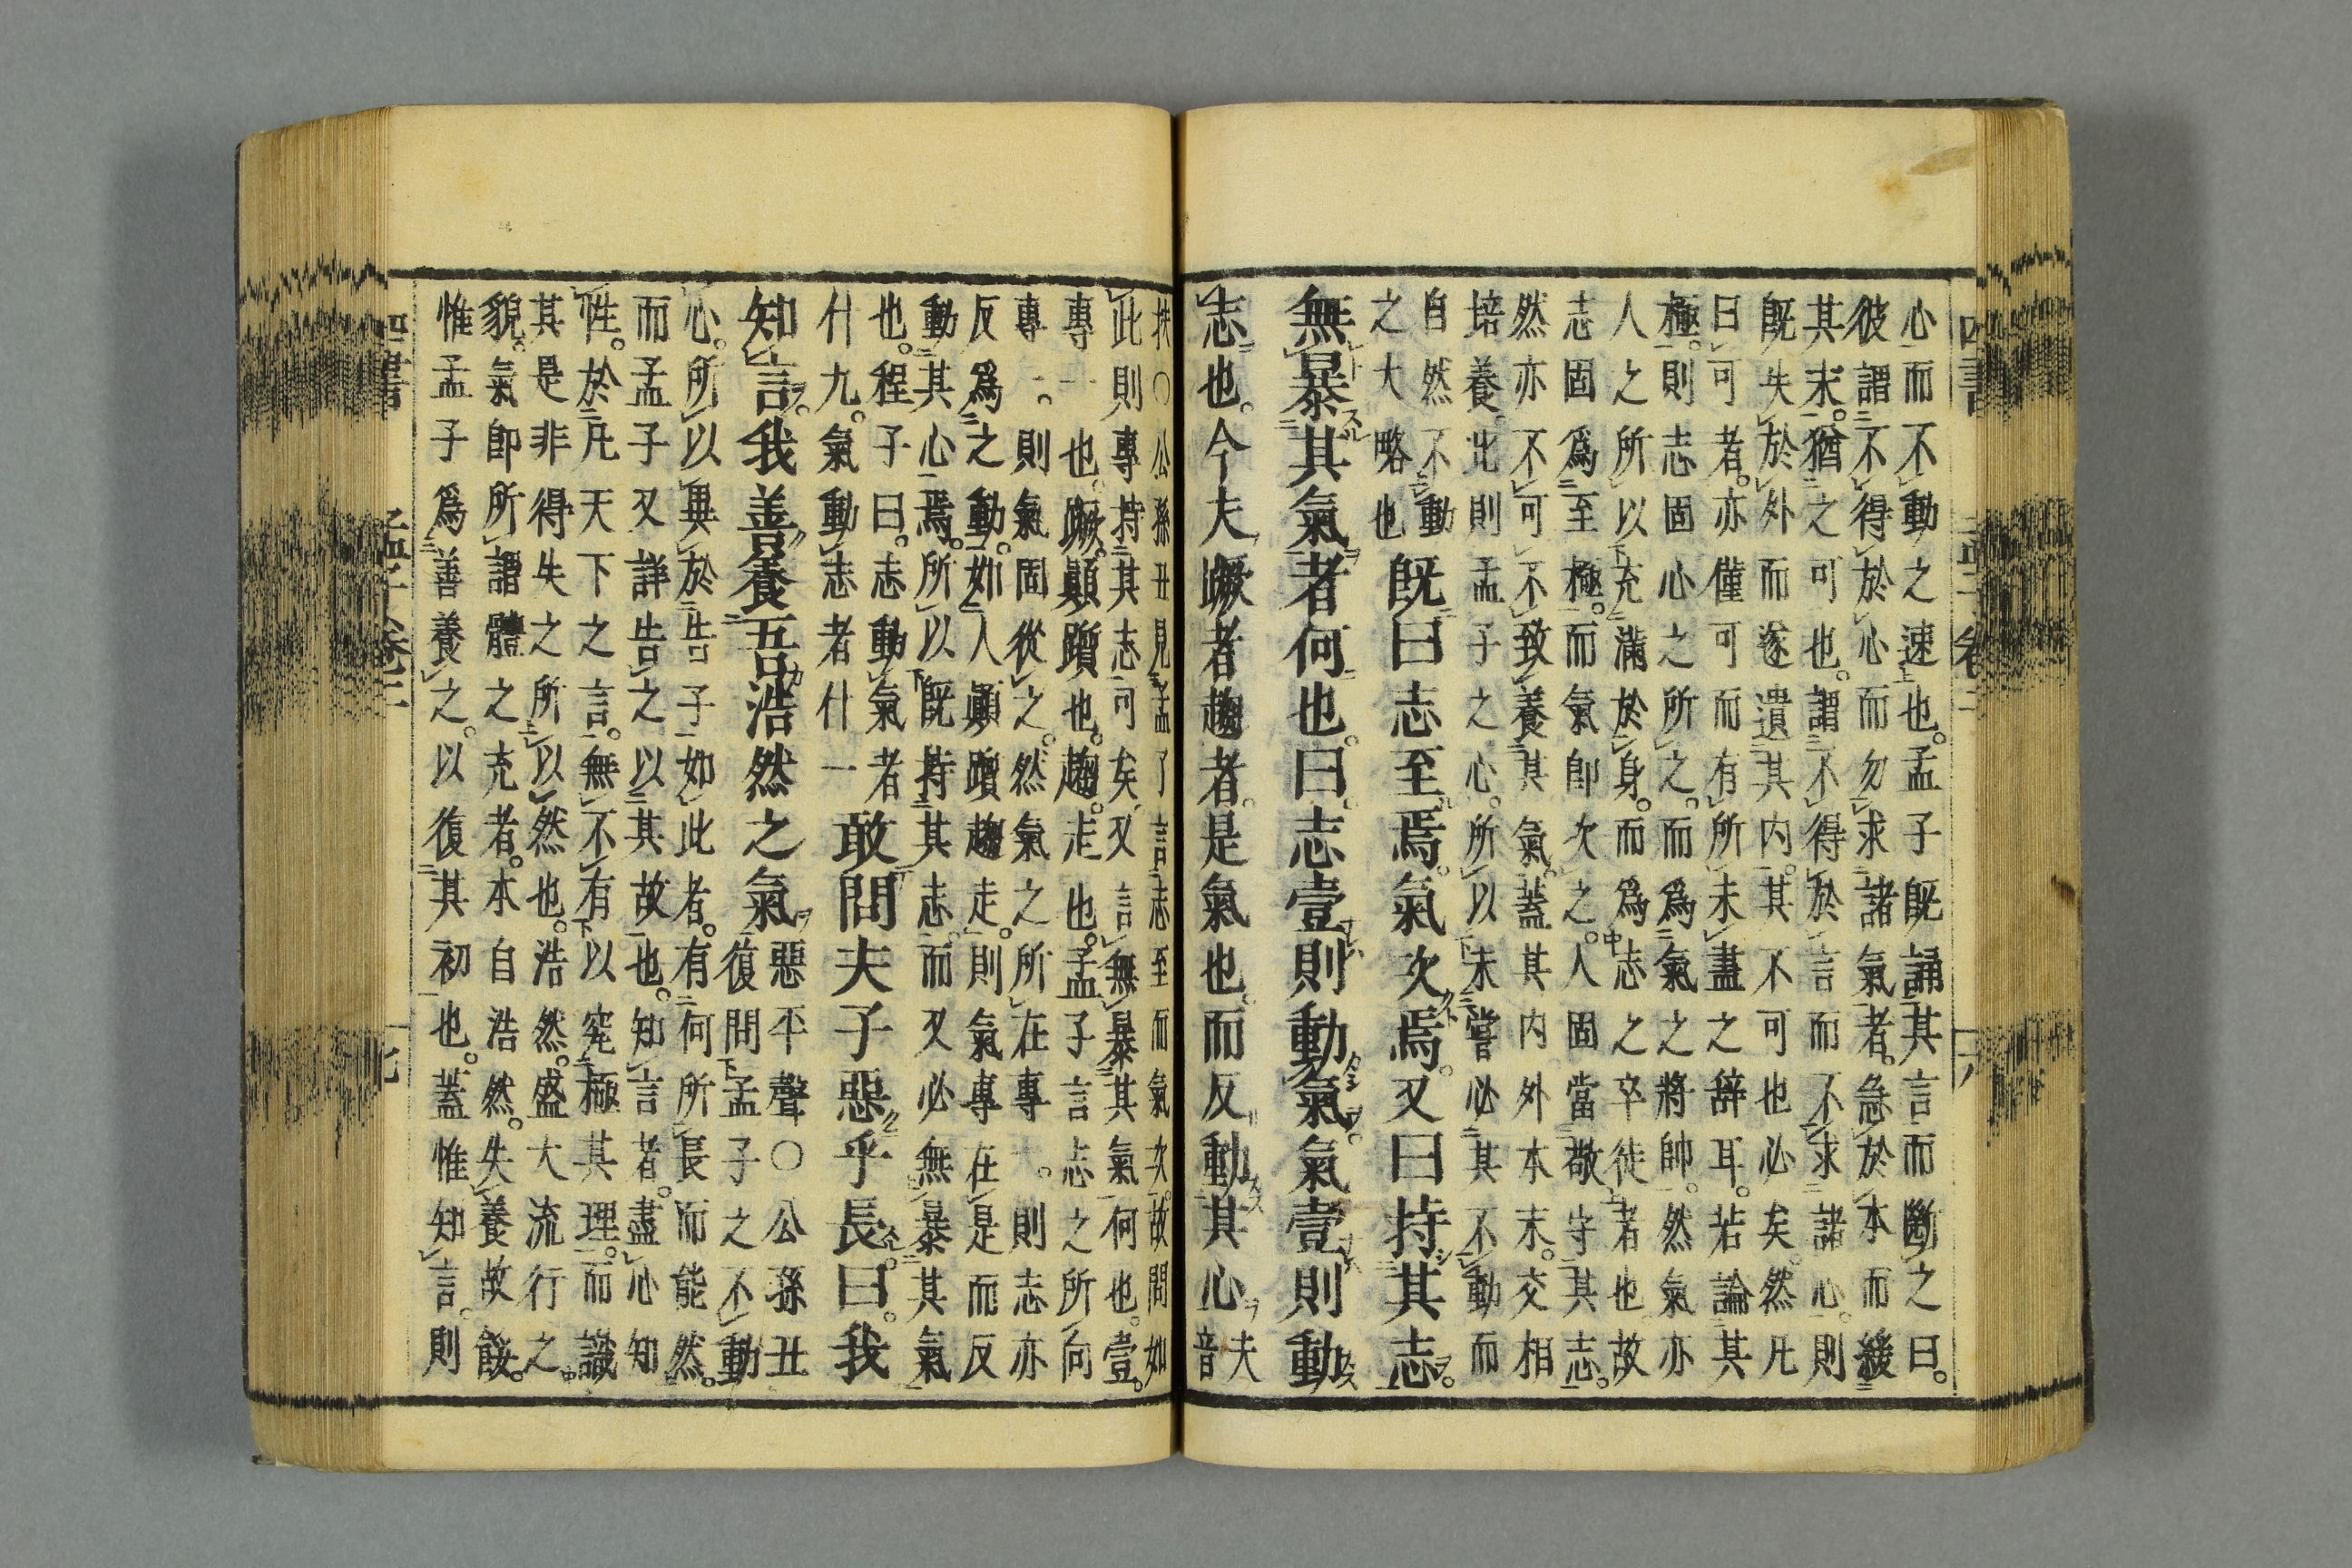 心而不動之速也。孟子既誦其言而斷之曰。
彼謂不得於心而勿求諸氣者。急於本而緩
其末。猶之可也。謂不得於言而不求諸心。則
既失於外而遂遺其内。其不可也必矣。然凡
曰可者。亦僅可而有所未盡之辭耳。若論其
極。則志固心之所之。而爲氣之將帥。然氣亦
人之所以充滿於身。而爲志之卒徒者也。故
志固爲至極。而氣即次之。人固當敬守其志。
然亦不可不致養其氣。蓋其内外本末。交相
培養。此則孟子之心。所以未嘗必其不動而
自然不動
之大略也
既曰志至焉。氣次焉。又曰持其志。
無暴其氣者何也。曰。志壹則動氣。氣壹則動
志也。今夫蹶者趨者。是氣也。而反動其心
夫
音
扶○公孫丑見孟子言志至而氣次。故問如
此則專持其志可矣。又言無暴其氣何也。壹。
專一也。蹶。顚躓也。趨。走也。孟子言志之所向
專一。則氣固從之。然氣之所在專一。則志亦
反爲之動。如人顚躓趨走。則氣專在是而反
動其心焉。所以既持其志。而又必無暴其氣
也。程子曰。志動氣者
什九。氣動志者什一
敢問夫子惡乎長。曰。我
知言。我善養吾浩然之氣
惡平聲○公孫丑
復問孟子之不動
心。所以異於告子如此者。有何所長而能然。
而孟子又詳告之以其故也。知言者。盡心知
性。於凡天下之言。無不有以究極其理。而識
其是非得失之所以然也。浩然。盛大流行之
貌。氣即所謂體之充者。本自浩然。失養故餒。
惟孟子爲善養之。以復其初也。蓋惟知言。則